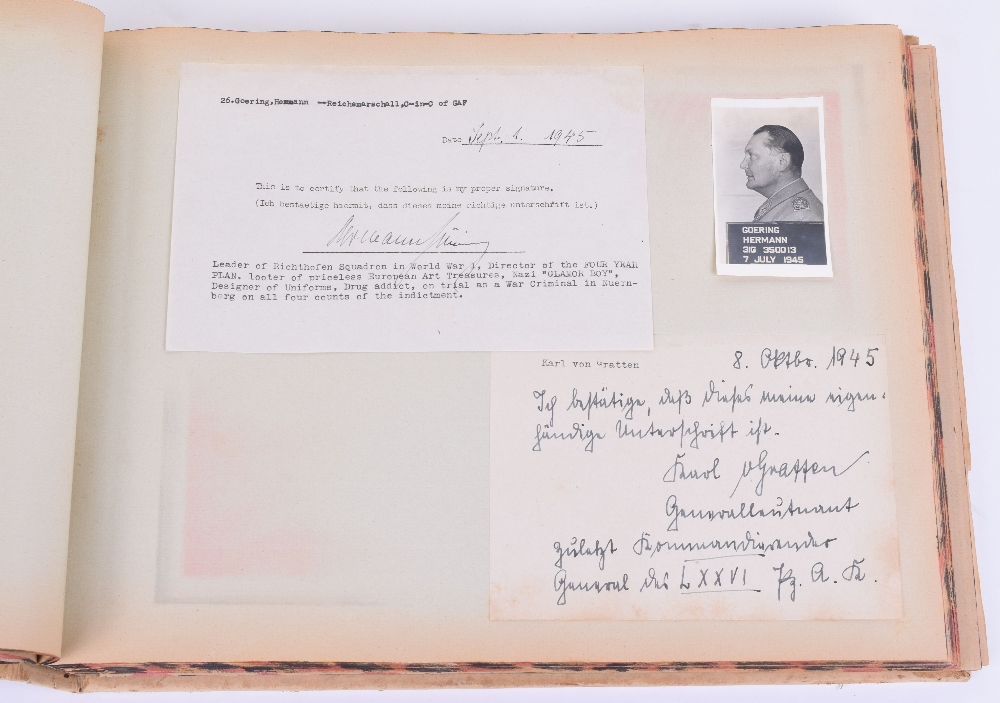 26.Goering,Hermann --Reichsmarschall,C-in-C of GAF
Date Sept. 1. 1945
This is to certify that the following is my proper signature.
(Ich bestaetige hiermit, dass dieses meine richtige unterschrift ist.)
Hermann Göring
Leader of Richthofen Squadron in World War I, Director of the FOUR YEAR
PLAN. looter of priceless European Art Treasures, Nazi "GLAMOR BOY",
Designer of Uniforms, Drug addict, on trial as a War Criminal in Nuern-
berg on all four counts of the indictment.
GOERING
HERMANN
31G 350013
7 JULY 1945
Karl von Gratten
8. Oktbr. 1945
Ich bestätige, daß dieses meine eigen-
händige Unterschrift ist.
Karl vGraffen
Generalleutnant
zuletzt Kommandierender
General des LXXVI Pz. A. K.